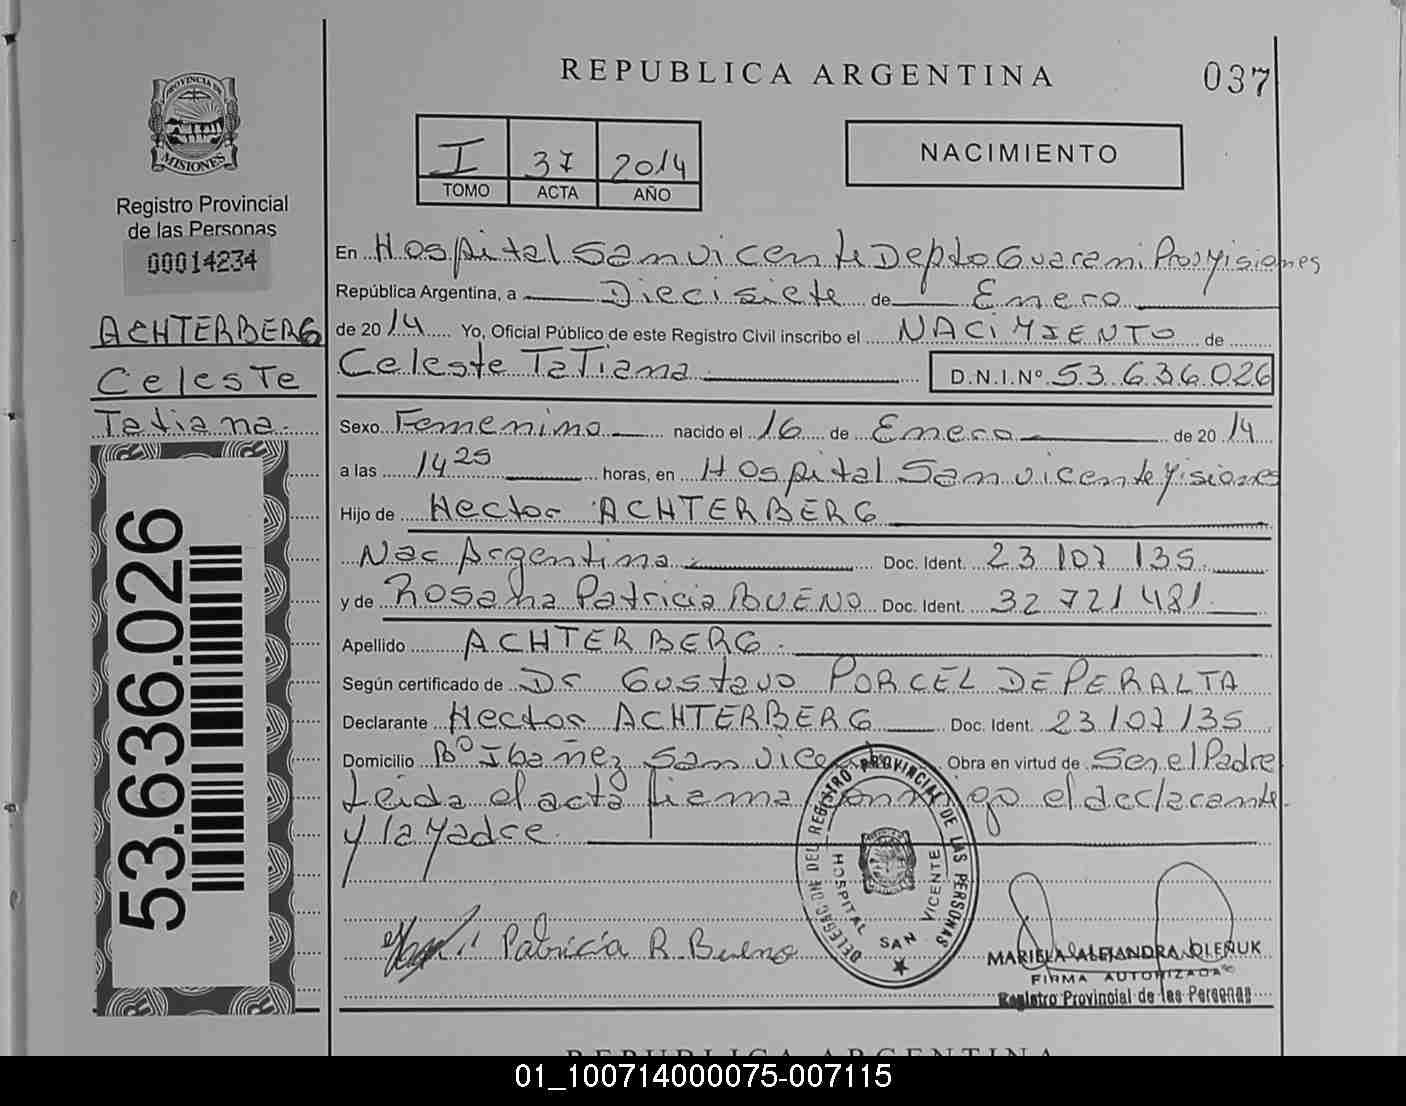 REPUBLICA ARGENTINA
037
PROVINCIA DE
MISIONES
Registro Provincial
de las Personas
00014234
ACHTERBERG
Celeste
Tatiana
53.636.026
I 37 2014
TOMO ACTA AÑO
NACIMIENTO
En Hospital San Vicente Depto Guarani Prov Misiones
República Argentina, a Diecisiete de Enero
de 2014 Yo, Oficial Público de este Registro Civil inscribo el NACIMIENTO de
Celeste Tatiana D.N.I.Nº 53.636.026
Sexo Femenino nacido el 16 de Enero de 2014
a las 14 25 horas, en Hospital San Vicente Misiones
Hijo de Hector ACHTERBERG
Nac Argentina Doc. Ident. 23 107 135
y de Rosana Patricia BUENO Doc. Ident. 32 721 481
Apellido ACHTERBERG.
Según certificado de Dr Gustavo PORCEL DE PERALTA
Declarante Hector ACHTERBERG Doc. Ident. 23107135
Domicilio Bº Ibañez San Vicente Obra en virtud de Ser el Padre
Leida el acta firma conmigo el declarante
y la Madre.
DELEGACION DEL REGISTRO PROVINCIAL DE LAS PERSONAS
HOSPITAL SAN VICENTE
Patricia R. Bueno
MARIELA ALEJANDRA OLEÑUK
FIRMA AUTORIZADA
Registro Provincial de las Personas
REPUBLICA ARGENTINA
01_100714000075-007115